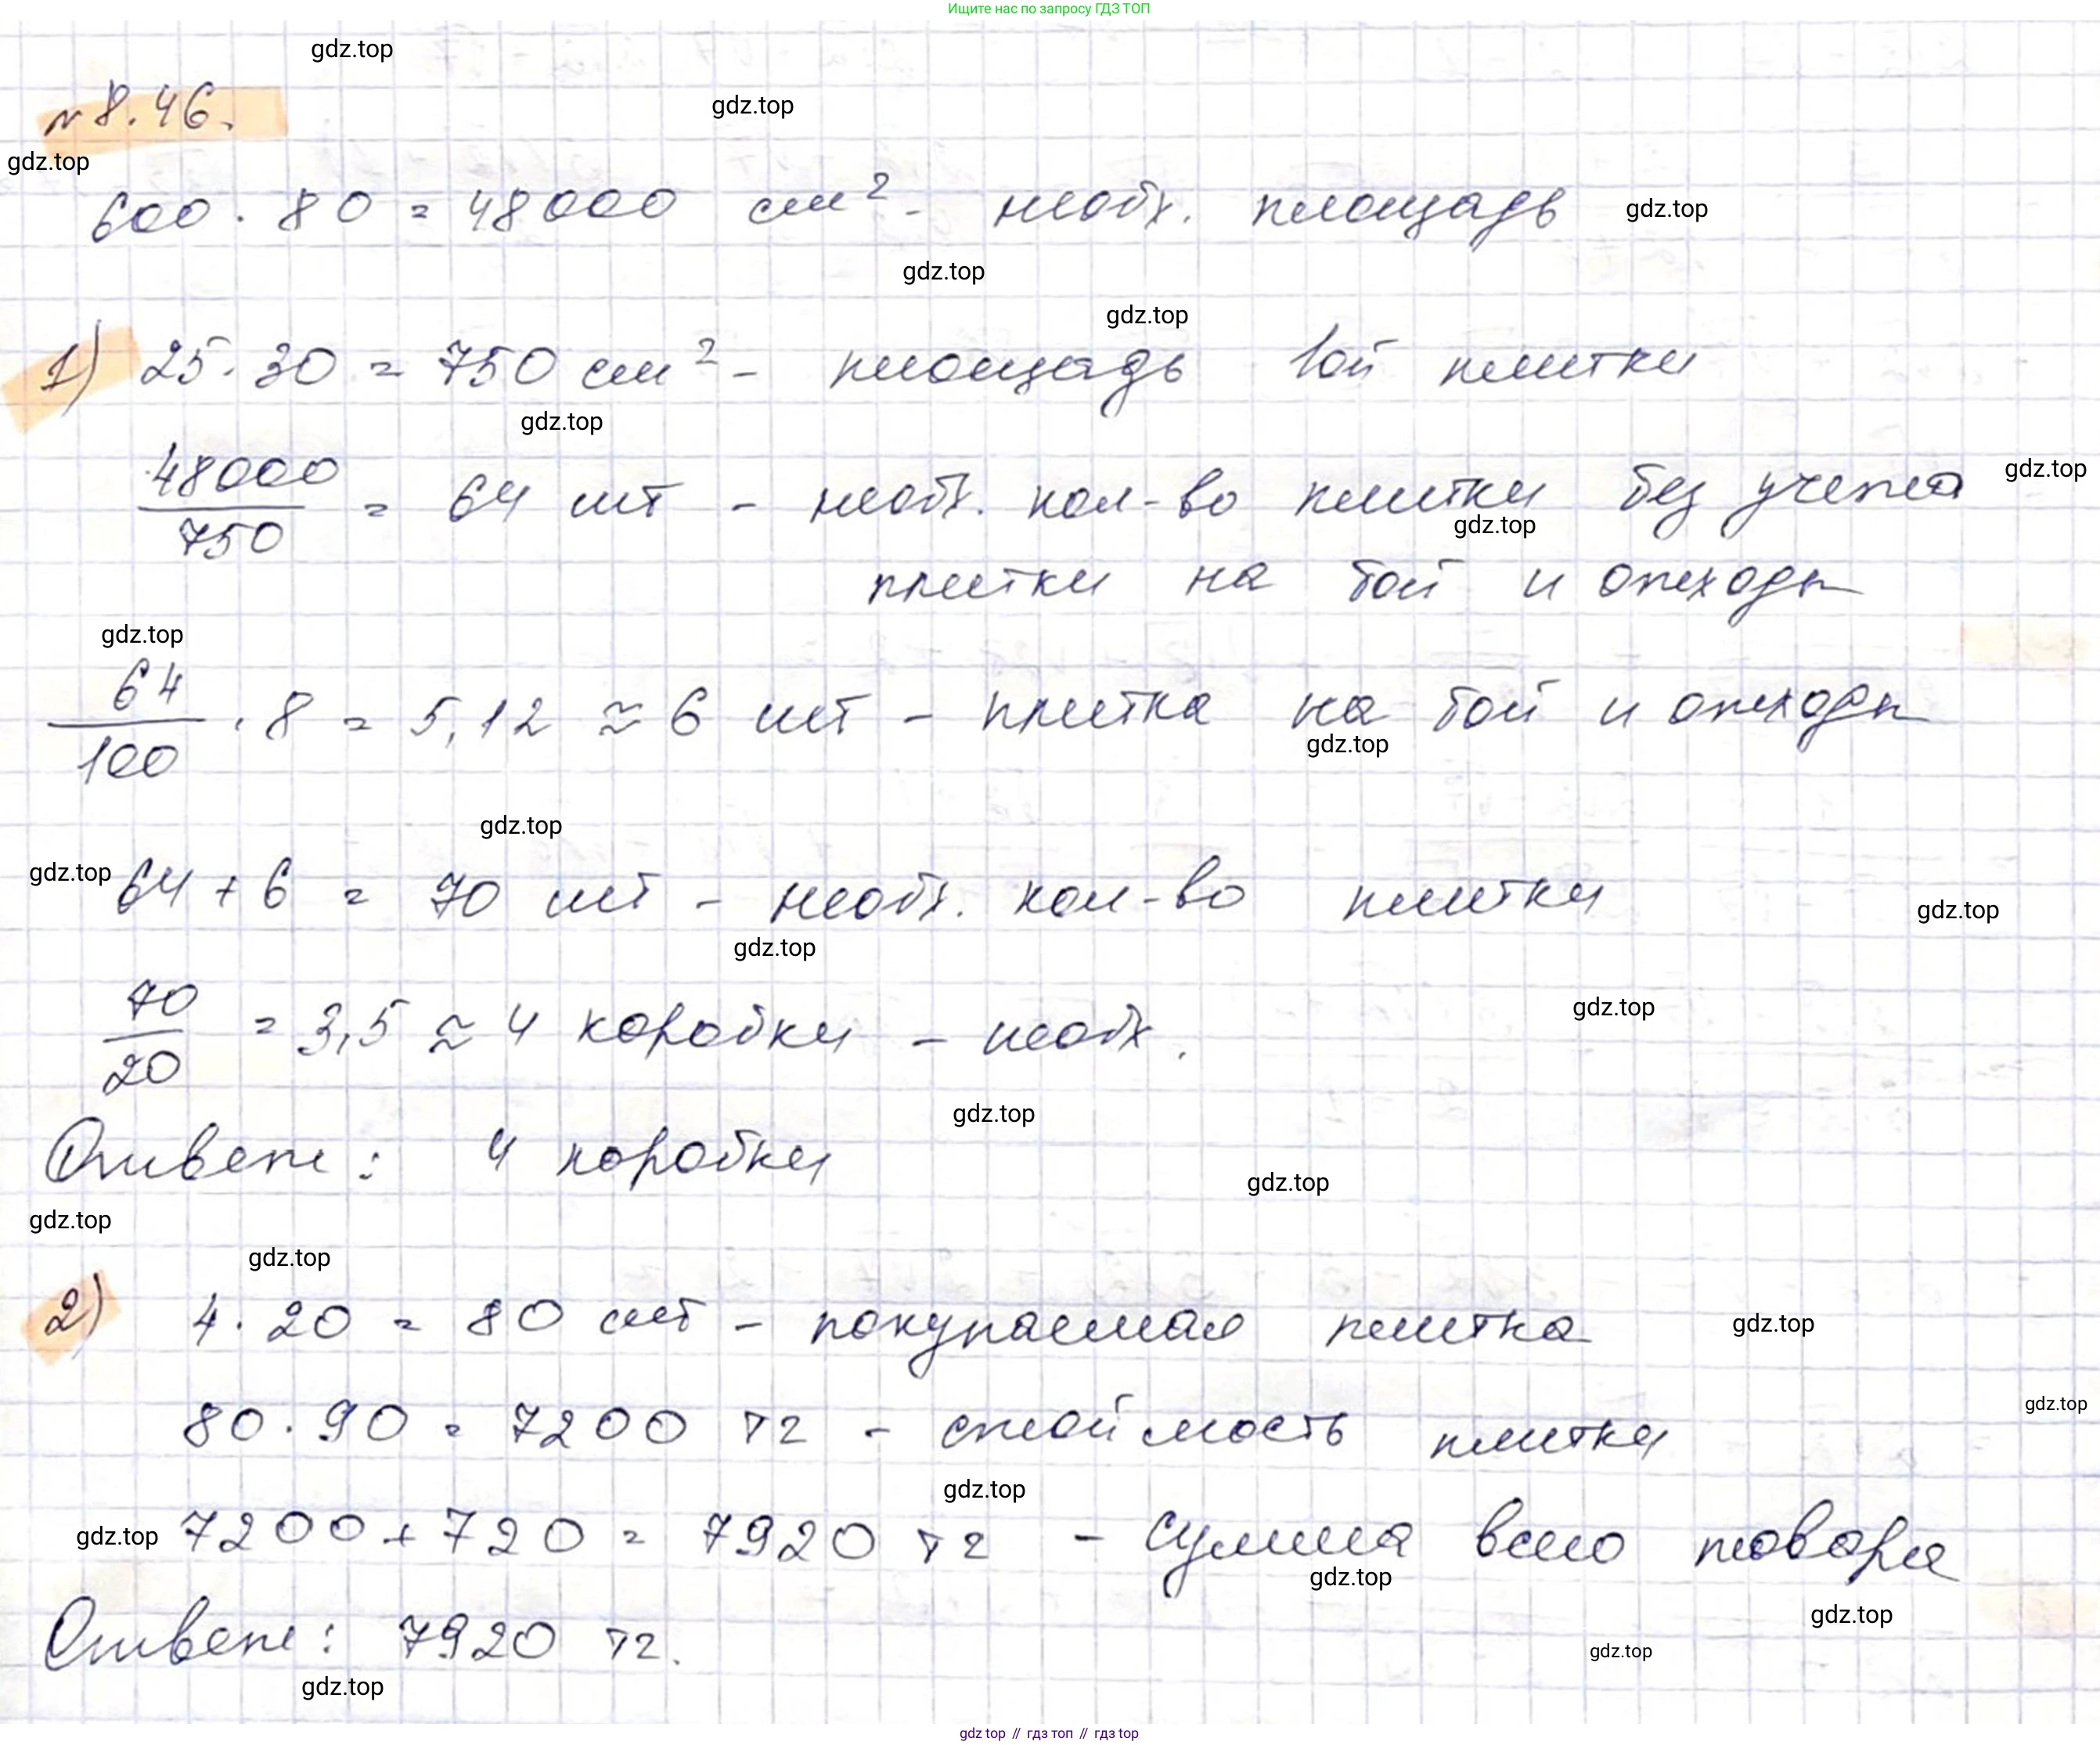 Ищите нас по запросу ГДЗ ТОП
gdz.top
№ 8.46.
gdz.top
gdz.top
600 · 80 = 48000 см² - необх. площадь
gdz.top
gdz.top
gdz.top
1) 25 · 30 = 750 см² - площадь 1ой плитки
gdz.top
48000/750 = 64 шт - необх. кол-во плитки без учета
gdz.top
gdz.top
плитки на бой и отходы
gdz.top
64/100 · 8 = 5,12 ≈ 6 шт - плитка на бой и отходы
gdz.top
gdz.top
gdz.top
64 + 6 = 70 шт - необх. кол-во плитки
gdz.top
gdz.top
70/20 = 3,5 ≈ 4 коробки - необх.
gdz.top
gdz.top
Ответ: 4 коробки
gdz.top
gdz.top
gdz.top
2) 4 · 20 = 80 шт - покупаемая плитка
gdz.top
80 · 90 = 7200 тг - стоймость плитки
gdz.top
gdz.top
gdz.top
7200 + 720 = 7920 тг - сумма всего товара
gdz.top
gdz.top
Ответ: 7920 тг.
gdz.top
gdz.top
gdz top // гдз топ // гдз top